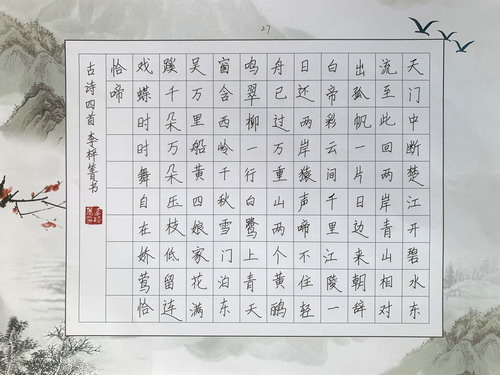 27
天门中断楚江开碧水东
流至此回两岸青山相对
出孤帆一片日边来朝辞
白帝彩云间千里江陵一
日还两岸猿声啼不住轻
舟已过万重山两个黄鹂
鸣翠柳一行白鹭上青天
窗含西岭千秋雪门泊东
吴万里船黄四娘家花满
蹊千朵万朵压枝低留连
戏蝶时时舞自在娇莺恰
恰啼
古诗四首 李梓箐书